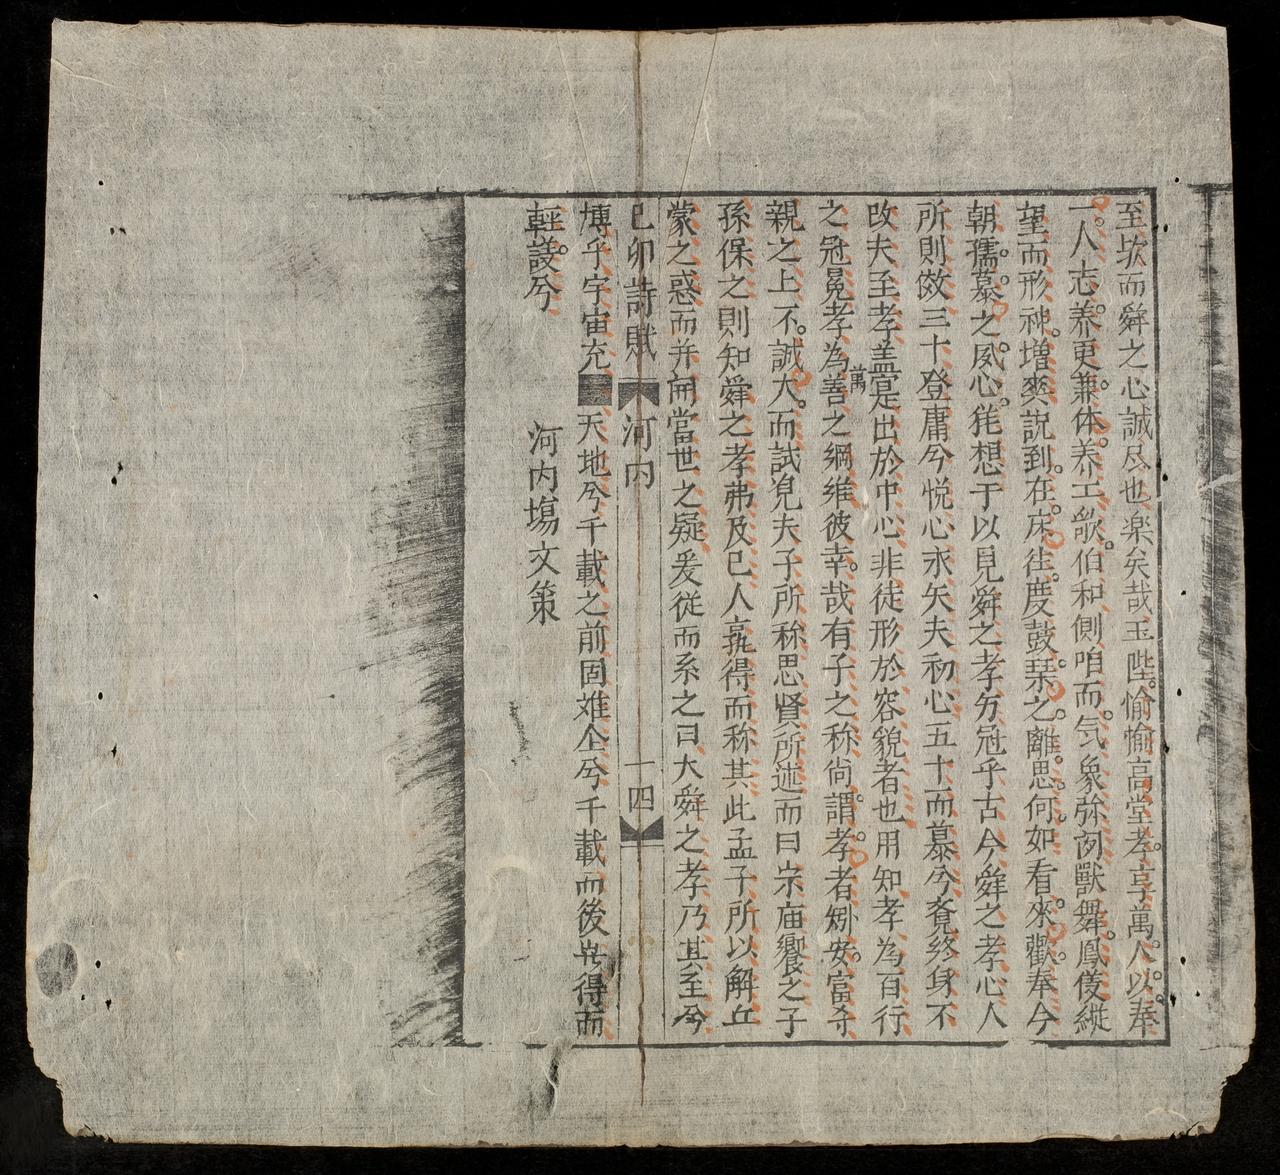 至坎而舜之心誠尽也楽矣哉玉陛愉愉高堂孝享萬人以奉
一人志养更兼体养工歌伯和側咱而氛象弥闭獸舞鳳儀縦
望而形神增爽説到在床徃度鼓琹之離思何如看來歡奉今
朝孺慕之夙心徃想于以見舜之孝夯冠乎古今舜之孝心人
所則傚三十登庸兮悦心永矢夫初心五十而慕兮奁終身不
改夫至孝盖寔出於中心非徒形於容貌者也用知孝為百行
之冠冕孝為萬善之綱維彼幸哉有子之称尚謂孝者矧安富夺
親之上不誠大而試覌夫子所称思賢所述而曰宗庙饗之子
孫保之則知舜之孝弗及已人孰得而称其此孟子所以解丘
蒙之惑而并開當世之疑爰従而系之曰大舜之孝乃其至兮
己卯詩賦 河内 一四
博乎宇宙充 天地兮千載之前固难仝兮千載而後曷得而
輕議兮
河内塲文策